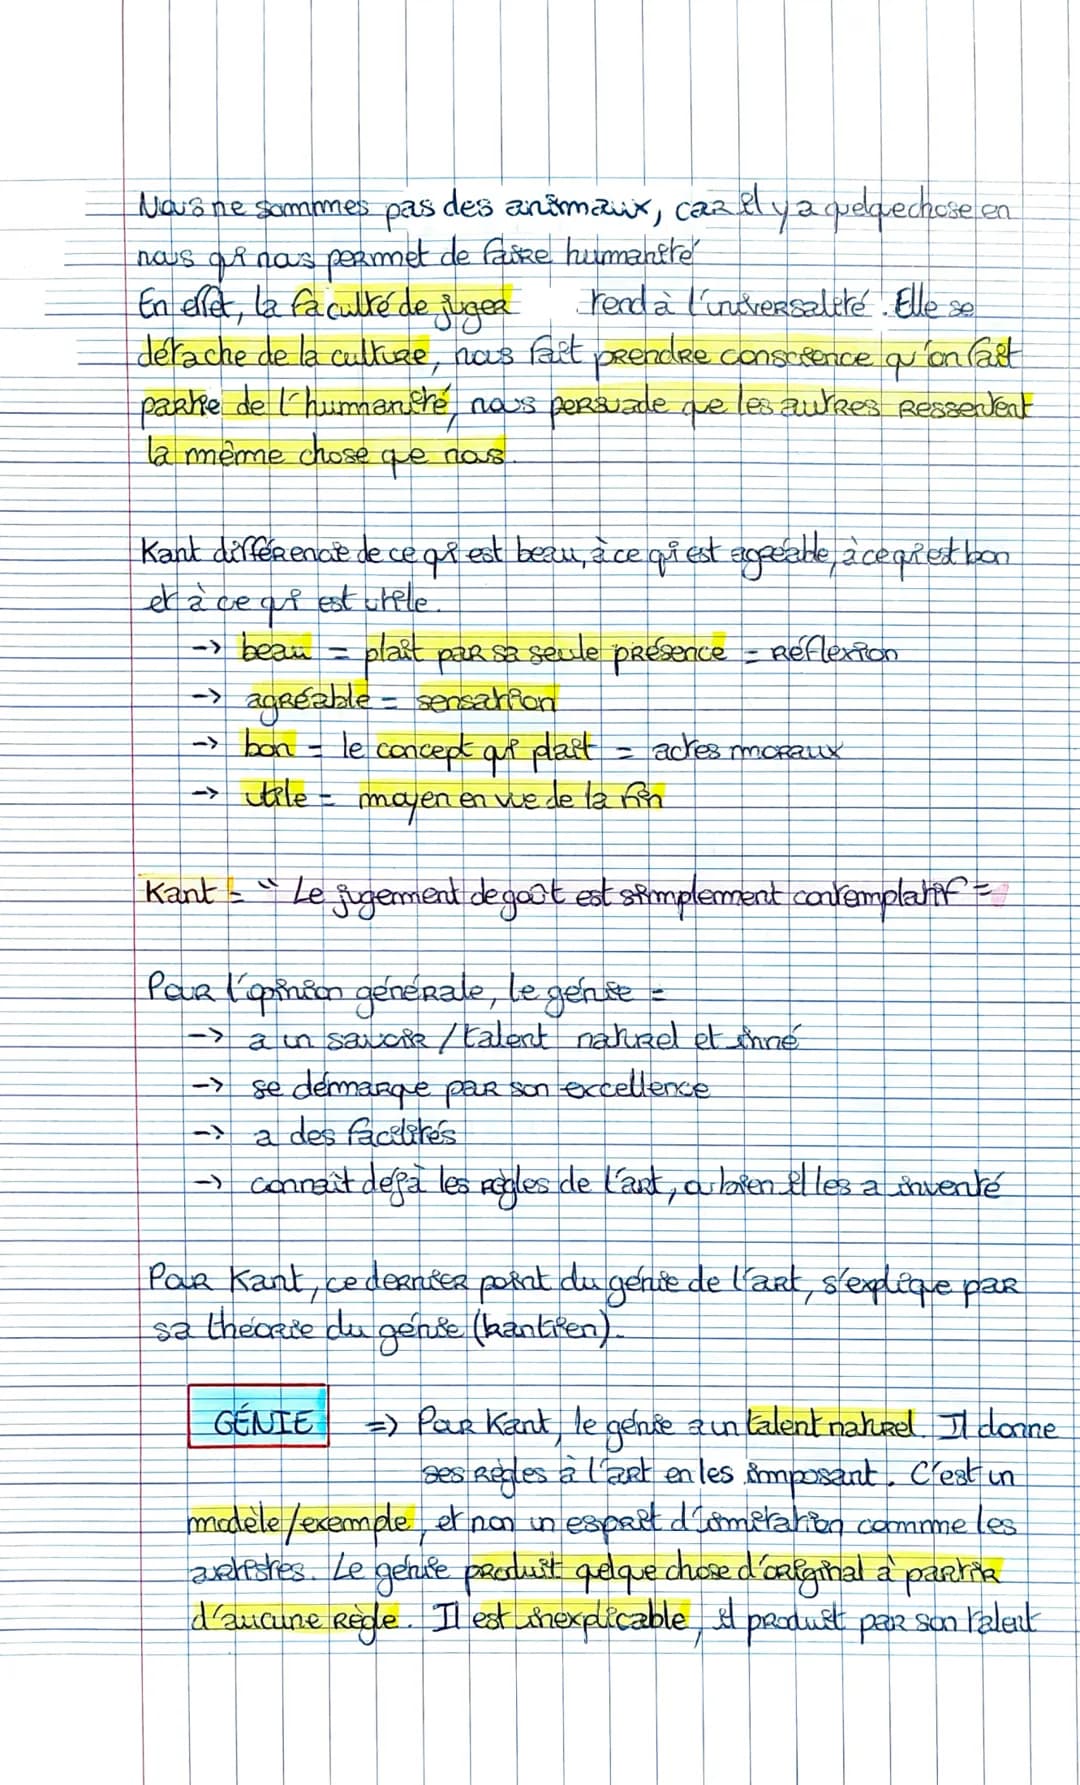 Nous ne sommmes pas des animaux, car il y a quelque chose en
nous qui nous permet de faire humanité
En effet, la faculté de juger tend à l'universalité. Elle se
détache de la culture, nous fait prendre conscience qu'on fait
partie de l'humanité, nous persuade que les autres ressentent
la même chose que nous.
Kant différencie de ce qui est beau, à ce qui est agréable, à ce qui est bon
et à ce qui est utile.
-> beau = plaît par sa seule présence = Réflexion
-> agréable = sensation
-> bon = le concept qui plaît = actes moraux
-> utile = moyen en vue de la fin
Kant = " Le jugement de goût est simplement contemplatif =
Pour l'opinion générale, le génie =
-> a un savoir / talent naturel et inné
-> se démarque par son excellence
-> a des facilités
-> connaît déjà les règles de l'art, ou bien il les a inventé
Pour Kant, ce dernier point du génie de l'art, s'explique par
sa théorie du génie (kantien).
GÉNIE => Pour Kant, le génie a un talent naturel. Il donne
ses Règles à l'art en les imposant. C'est un
modèle/exemple, et non un esprit d'imitation commme les
artistes. Le génie produit quelque chose d'original à partir
d'aucune Règle. Il est inexplicable, il produit par son talent